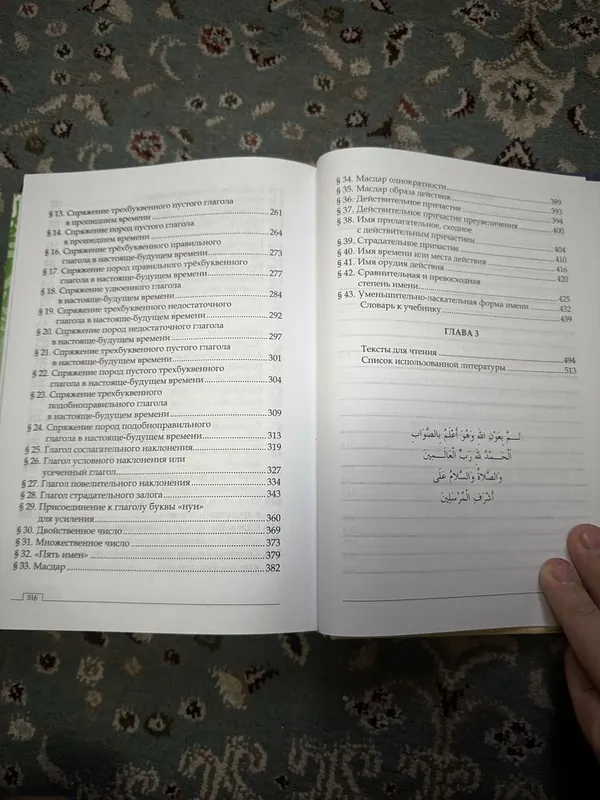 § 13. Спряжение трехбуквенного пустого глагола
в прошедшем времени 261
§ 14. Спряжение пород пустого глагола
в прошедшем времени 264
§ 16. Спряжение трёхбуквенного правильного
глагола в настояще-будущем времени 273
§ 17. Спряжение пород правильного трёхбуквенного
глагола в настояще-будущем времени 277
§ 18. Спряжение удвоенного глагола
в настояще-будущем времени 284
§ 19. Спряжение трехбуквенного недостаточного
глагола в настояще-будущем времени 292
§ 20. Спряжение пород недостаточного глагола
в настояще-будущем времени 297
§ 21. Спряжение трехбуквенного пустого глагола
в настояще-будущем времени 301
§ 22. Спряжение пород пустого трехбуквенного
глагола в настояще-будущем времени 304
§ 23. Спряжение трехбуквенного
подобноправильного глагола
в настояще-будущем времени 309
§ 24. Спряжение пород подобноправильного
глагола в настояще-будущем времени 313
§ 25. Глагол сослагательного наклонения 319
§ 26. Глагол условного наклонения или
усеченный глагол 327
§ 27. Глагол повелительного наклонения 334
§ 28. Глагол страдательного залога 343
§ 29. Присоединение к глаголу буквы «нун»
для усиления 360
§ 30. Двойственное число 369
§ 31. Множественное число 373
§ 32. «Пять имен» 379
§ 33. Масдар 382
516
§ 34. Масдар однократности 389
§ 35. Масдар образа действия 393
§ 36. Действительное причастие 394
§ 37. Действительное причастие преувеличения 400
§ 38. Имя прилагательное, сходное
с действительным причастием 404
§ 39. Страдательное причастие 410
§ 40. Имя времени или места действия 416
§ 41. Имя орудия действия 420
§ 42. Сравнительная и превосходная
степень имени 425
§ 43. Уменьшительно-ласкательная форма имени 432
Словарь к учебнику 439
ГЛАВА 3
Тексты для чтения 494
Список использованной литературы 513
تَــمَّ بِعَوْنِ اللهِ وَهُوَ أَعْلَمُ بِالصَّوَابِ
اَلْحَمْــدُ لِلهِ رَبِّ الْعَالَــمِينَ
وَالصَّلَاةُ وَالسَّلَامُ عَلَى
أَشْرَفِ الْمُرْسَلِينَ